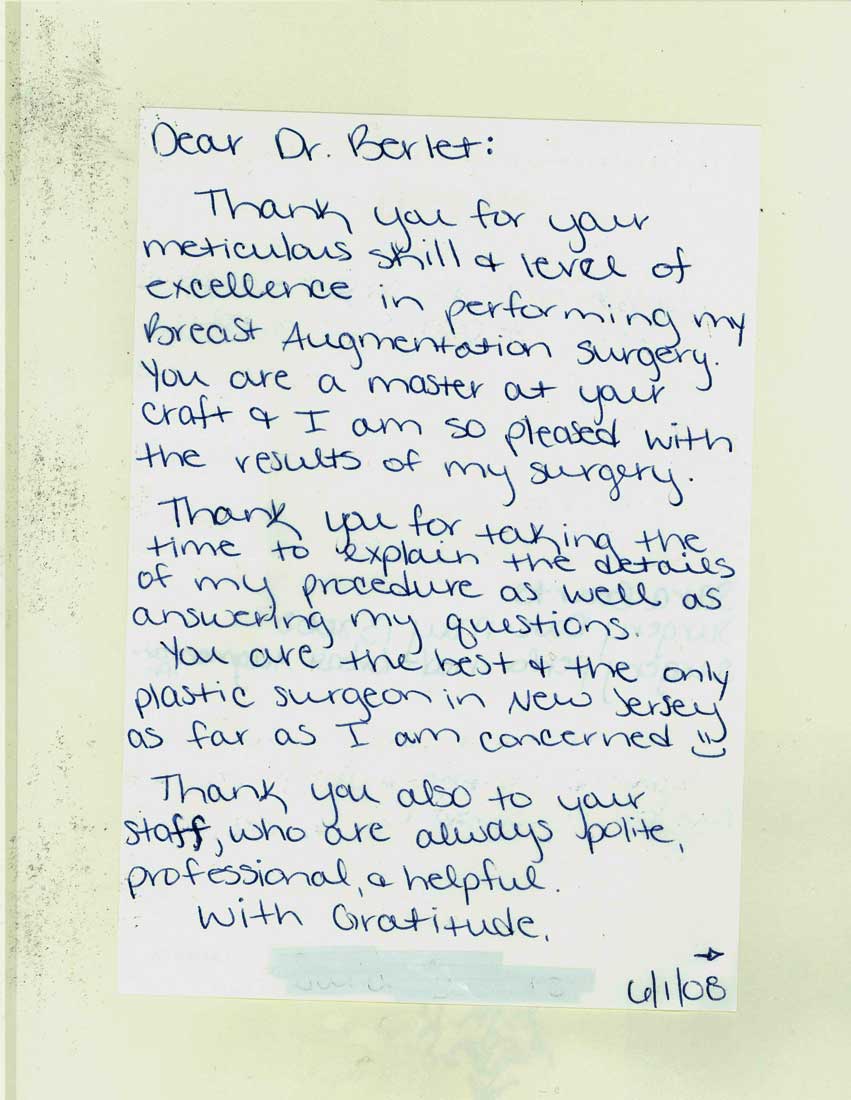 Dear Dr. Berlet:
Thank you for your
meticulous skill & level of
excellence in performing my
Breast Augmentation surgery.
You are a master at your
craft & I am so pleased with
the results of my surgery.
Thank you for taking the
time to explain the details
of my procedure as well as
answering my questions.
You are the best & the only
plastic surgeon in New Jersey
as far as I am concerned
Thank you also to your
staff, who are always polite,
professional, & helpful.
With Gratitude,
→
6/1/08